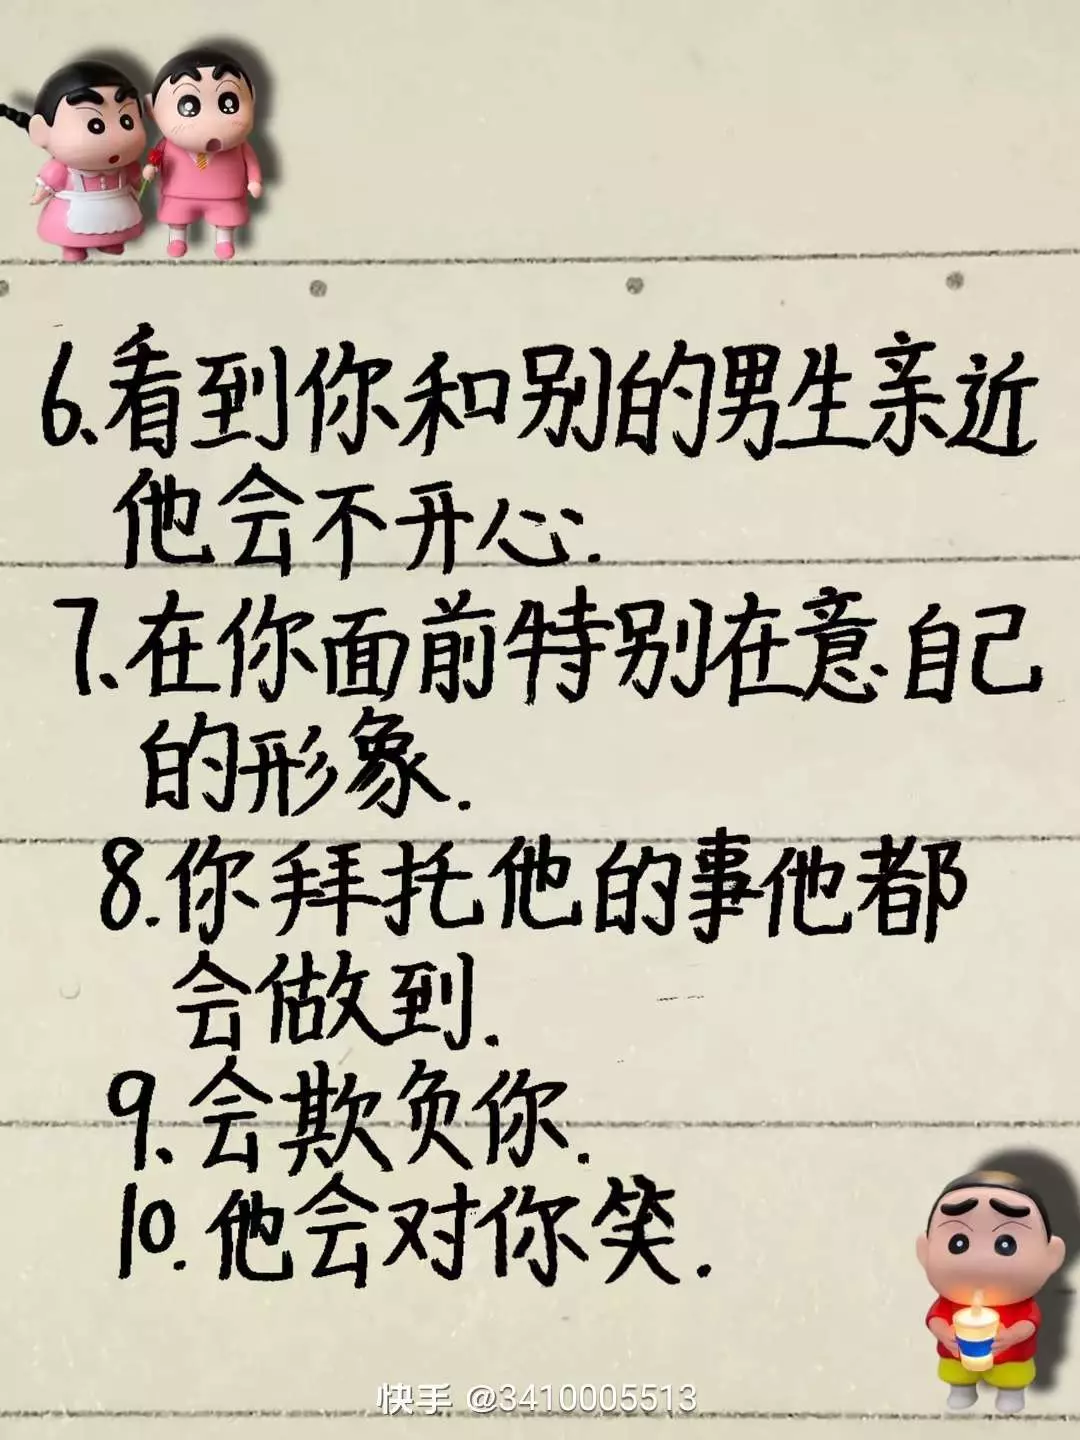 6、看到你和别的男生亲近
他会不开心.
7、在你面前特别在意自己
的形象.
8.你拜托他的事他都
会做到.
9、会欺负你.
10.他会对你笑.
快手 @3410005513